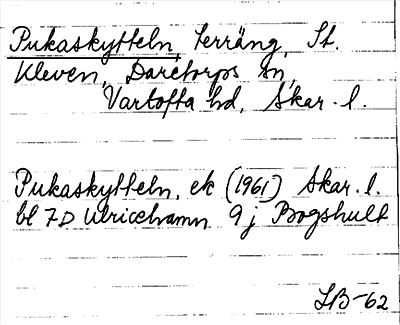 Pukaskytteln, terräng, St.
Kleven, Daretorps sn,
Vartofta hd, Skar. l.
Pukaskytteln, ek (1961) Skar. l.
bl 7D Ulricehamn 9j Bogshult
SB-62